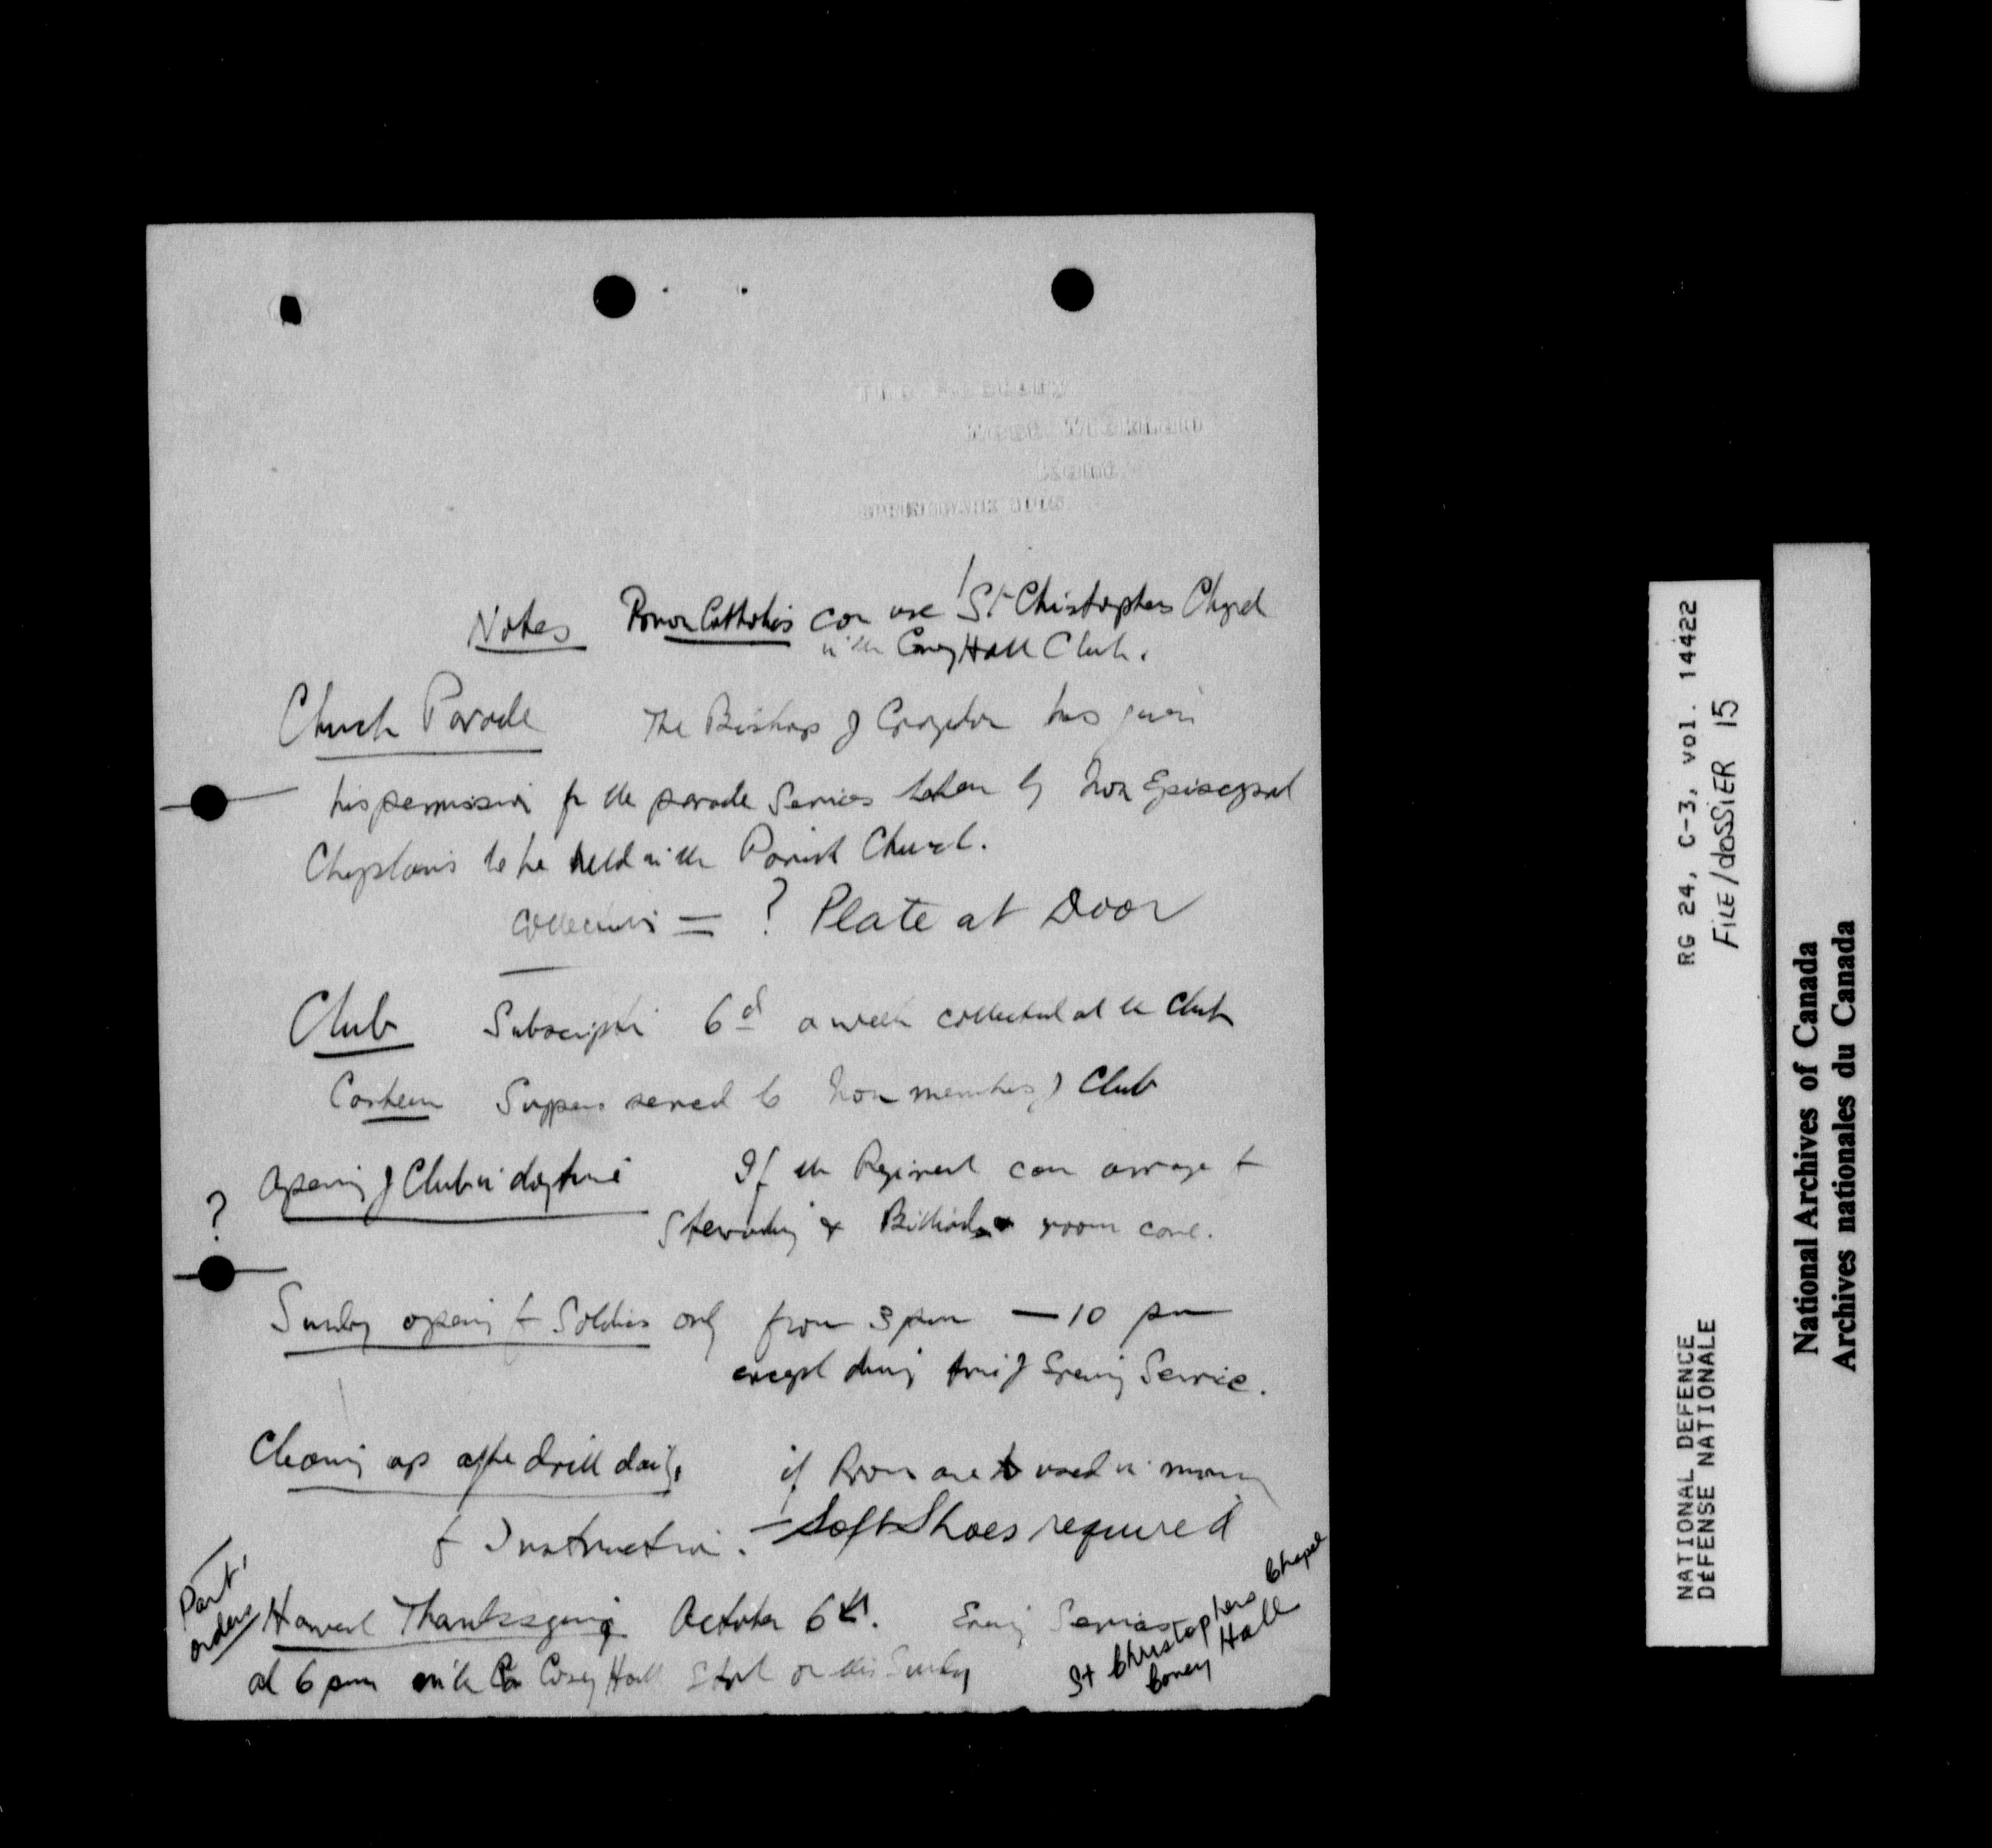 Notes Roman Catholics can use St Christophers Chapel
in the Coney Hall Club.
Church Parade The Bishop of Croydon has given
his permission for the parade Services taken by Non Episcopal
Chaplains to be held in the Parish Church.
Collections = ? Plate at Door
Club Subscription 6d a week collected at the Club
Canteen Suppers served to Non members of Club
Opening of Club in daytime If the Regiment can arrange for
?
Stewarding & Billiard room care.
Sunday opening for Soldiers only from 3 pm — 10 pm
except during time of Evening Service.
Cleaning up after drill daily. if Rooms are used in morning
for Instruction. — Soft Shoes required
Part 1
orders
Harvest Thanksgiving October 6th. Evening Service
at 6 pm in the Coney Hall on this Sunday
St Christophers Chapel
Coney Hall
RG 24, C-3, vol. 14422
FILE/dossier 15
NATIONAL DEFENCE
DÉFENSE NATIONALE
National Archives of Canada
Archives nationales du Canada